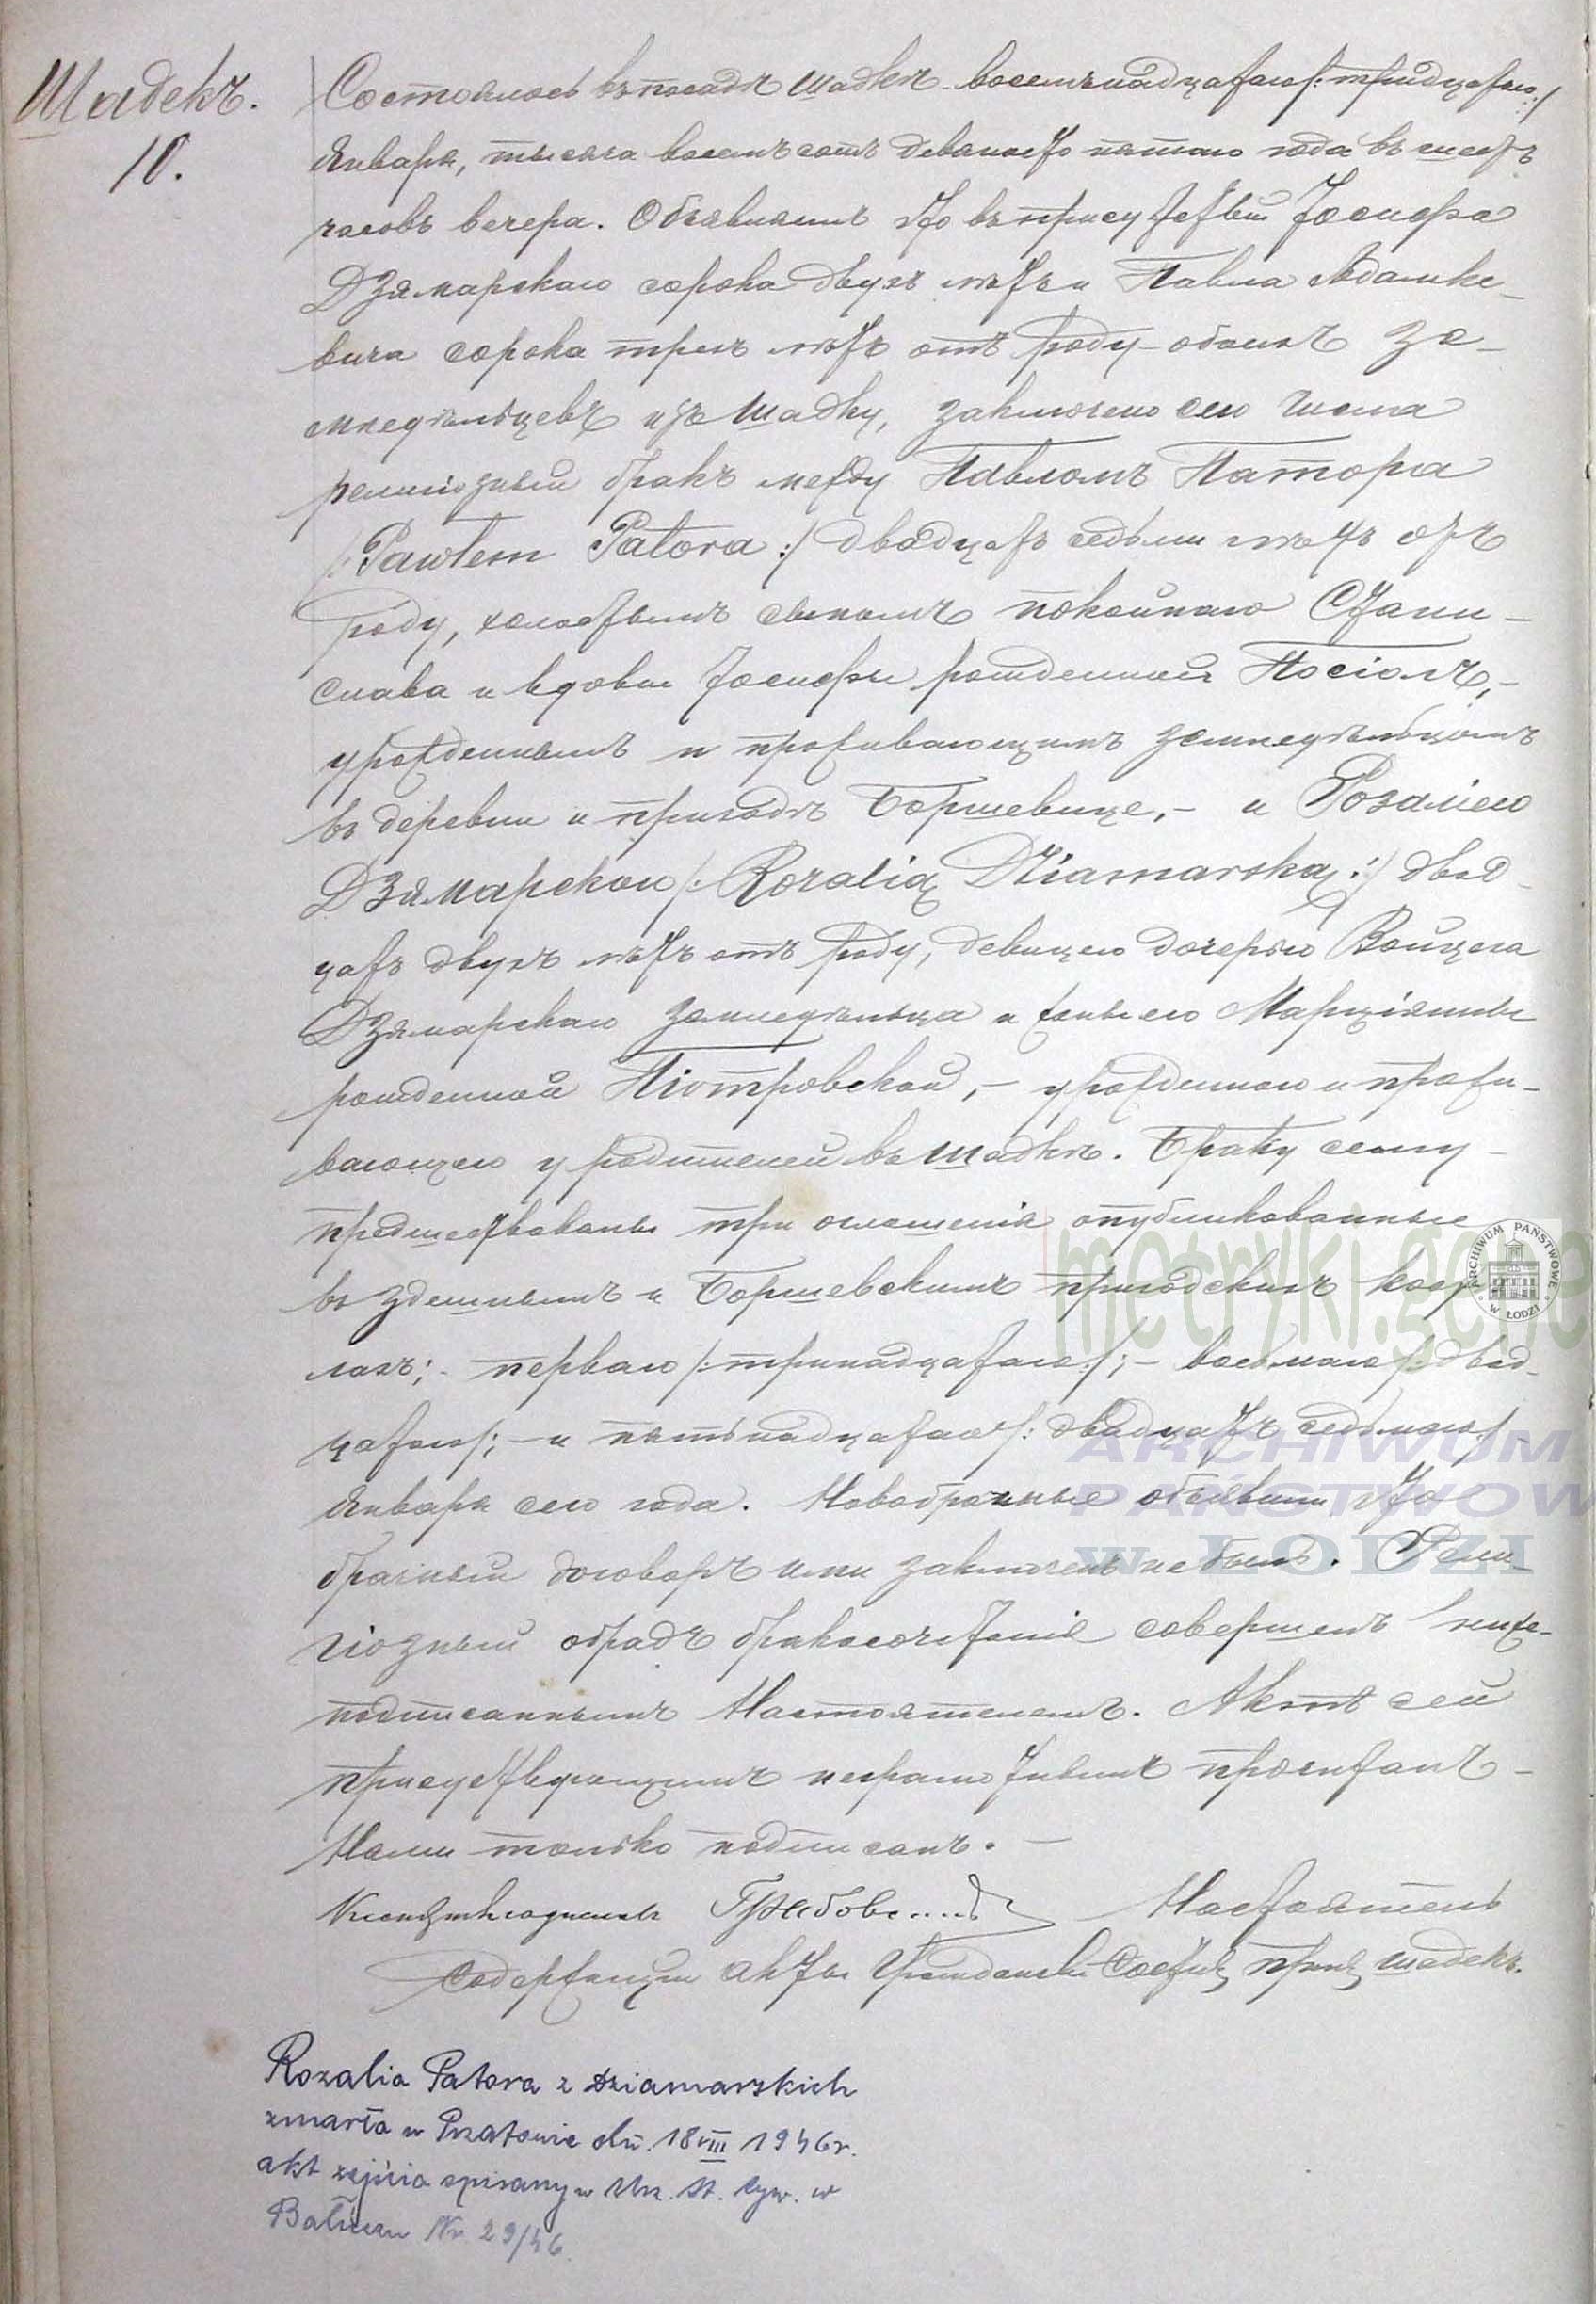 Шадекъ.
10.
Состоялось въ посадѣ Шадкѣ восемьнадцатаго /:тридцатаго:/
Января, тысяча восемьсотъ девяносто пятаго года въ шесть
часовъ вечера. Объявляемъ что въ присутствіи Іосифа
Дзямарскаго сорока двухъ лѣтъ и Павла Адамке-
вича сорока трехъ лѣтъ отъ роду обоихъ зе-
мледѣльцевъ изъ Шадку, заключено сего числа
религіозный бракъ между Павломъ Патора
/:Pawłem Patora:/ двадцать седьми лѣтъ отъ
роду, холостымъ сыномъ покойнаго Стани-
слава и вдовы Іосифы рожденной Посіолъ,-
урожденнымъ и проживающимъ земледѣльцомъ
въ деревни и приходѣ Боршевице,- и Розаліею
Дзямарскою /:Rozalią Dziamarską:/ двад-
цать двухъ лѣтъ отъ роду, девицею дочерью Войцеха
Дзямарскаго земледѣльца и жены его Марціянны
рожденной Піотровской,- урожденною и прожи-
вающею у родителей въ Шадкѣ. Браку сему
предшествовали три оглашенія опубликованные
въ здешнемъ и Боршевскимъ приходскихъ кост
лахъ;- перваго /:тринадцатаго:/;- восьмаго /:двад-
цатаго/;- и пятьнадцатаго /:двадцать седьмаго/
Января сего года. Новобрачные объявили что
брачный договоръ ими заключенъ не былъ. Рели-
гіозный обрядъ бракосочетанія совершенъ ниже-
подписаннымъ Настоятелемъ. Актъ сей
присутствующимъ неграмотнымъ прочитанъ-
Нами только подписанъ.-
Настоятель
Содержащій акты Гражданскаго Состоя прих Шадекъ.
Rozalia Patora z Dziamarskich
zmarła w Przatowie dn. 18 VIII 1946r.
akt zejścia spisany w Urz. St. Cyw. w
Bałuczu Nr 29/46.
metryki.gene
ARCHIWUM PAŃSTWOWE W ŁODZI
ARCHIWUM
PAŃSTWOW
w ŁODZI